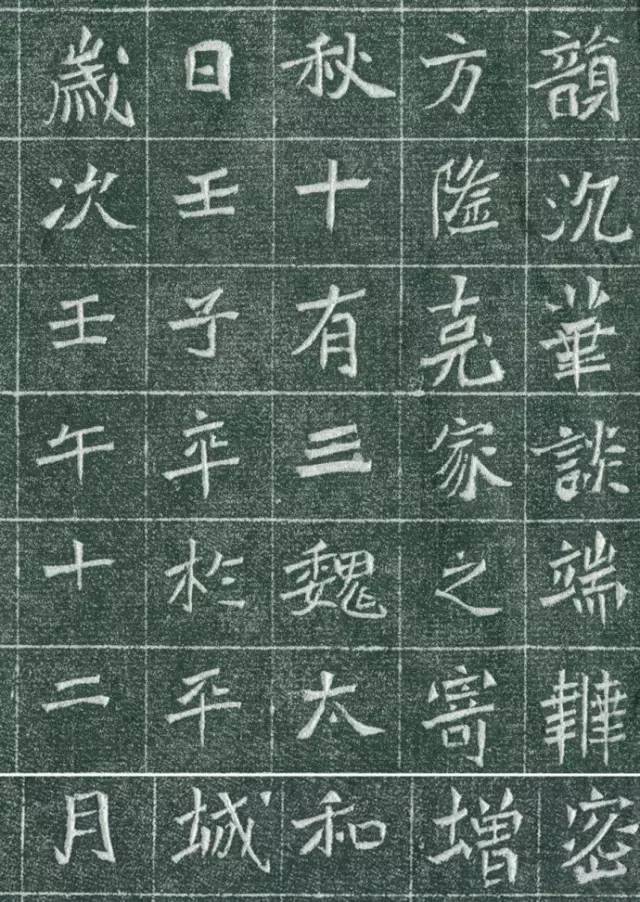 韻沉華談端韡密
方隆克家之寄增
秋十有三魏太和
日壬子卒於平城
歲次壬午十二月